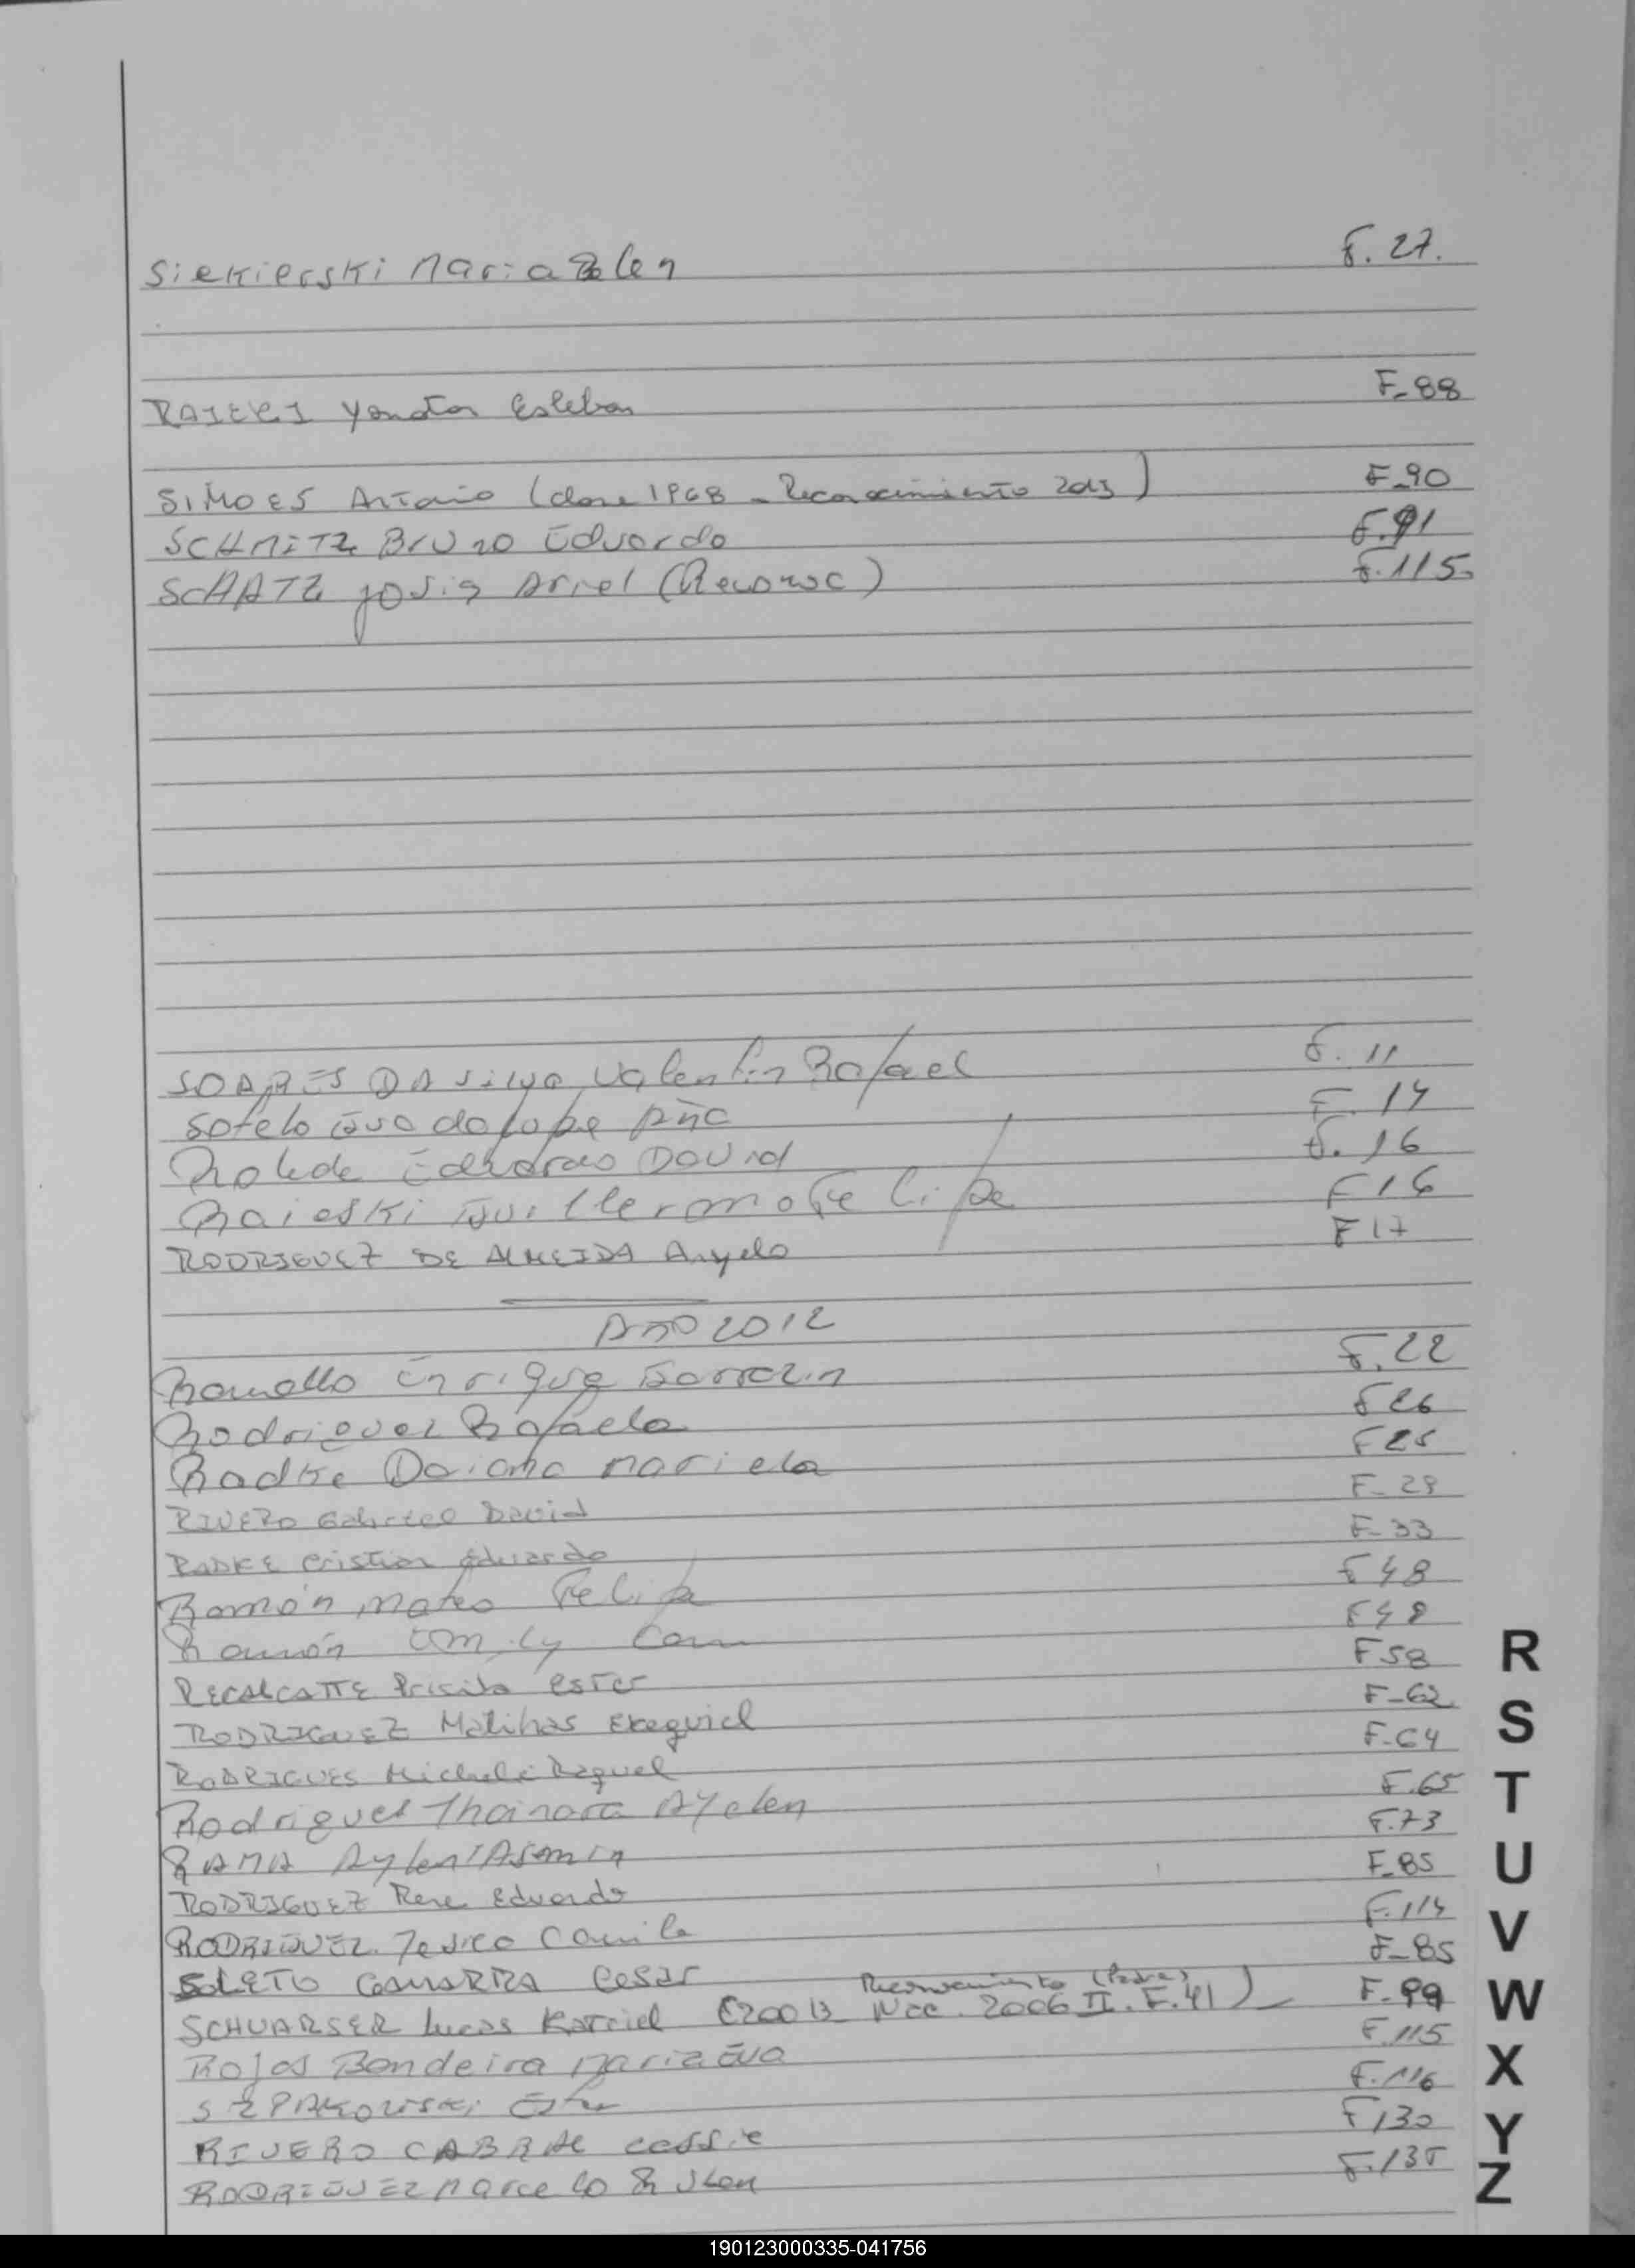 Siekierski Maria Belen F. 27.
RAIERI Yonatan Esteban F-88
SIMOES Antonio (clase 1968 - Reconocimiento 2013) F-90
SCHMITZ Bruno Eduardo F.91
SCHATZ Josia Ariel (Reconoc) F.115
SOARES DA Silva Valentin Rafael F. 11
Sotelo F. 14
Eduardo David F. 16
Raieski Guillermo Felipe F 16
RODRIGUEZ DE ALMEIDA Angelo F 17
Año 2012
Ramallo Enrique F. 22
Rodriguez Rafaela F 26
Radke Daiana Mariela F 25
RIVERO Gabriel David F- 29
RADKE Cristian Eduardo F- 33
Ramón, Mateo Felipe F 48
Ramón F 48
RECALCATTE Priscila Ester F 58
RODRIGUEZ Matihas Exequiel F-62
RODRIGUES Michele Raquel F-64
Rodriguez Thainara Ayelen F.65
RAMA Aylen IAsmin F.73
RODRIGUEZ Rene Eduardo F-85
RODRIGUEZ Jesica Camila F.114
SOLETO GAMARRA Cesar F-85
Reconocimiento (Padre)
SCHUARSER Lucas Nac. 2006 II. F.41) F-99
Rojas Bandeira Maria Eva F.115
SZPAKOWSKI Ester F.116
RIVERO CABRAL F 130
RODRIGUEZ Marcelo Ruben F.135
R
S
T
U
V
W
X
Y
Z
190123000335-041756